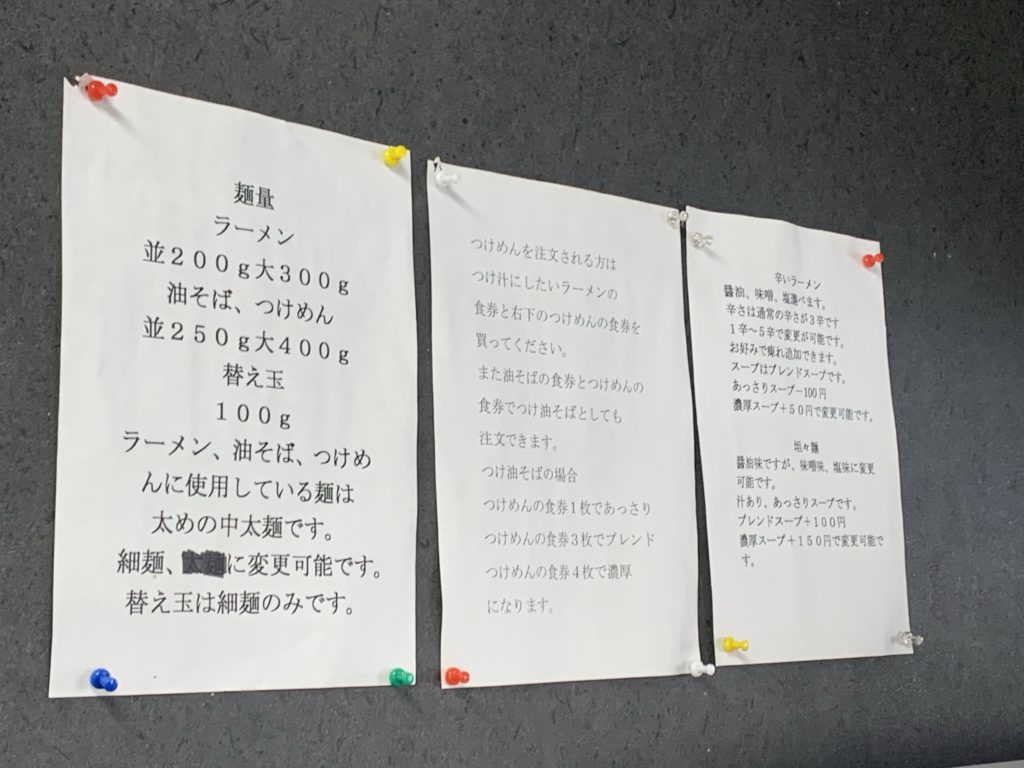 麺量
ラーメン
並200g大300g
油そば、つけめん
並250g大400g
替え玉
100g
ラーメン、油そば、つけめ
んに使用している麺は
太めの中太麺です。
細麺、に変更可能です。
替え玉は細麺のみです。
つけめんを注文される方は
つけ汁にしたいラーメンの
食券と右下のつけめんの食券を
買ってください。
また油そばの食券とつけめんの
食券でつけ油そばとしても
注文できます。
つけ油そばの場合
つけめんの食券1枚であっさり
つけめんの食券3枚でブレンド
つけめんの食券4枚で濃厚
になります。
辛いラーメン
醤油、味噌、塩選べます。
辛さは通常の辛さが3辛です
1辛～5辛で変更が可能です。
お好みで痺れ追加できます。
スープはブレンドスープです。
あっさりスープ－100円
濃厚スープ＋50円で変更可能です。
坦々麺
醤油味ですが、味噌味、塩味に変更
可能です。
汁あり、あっさりスープです。
ブレンドスープ＋100円
濃厚スープ＋150円で変更可能で
す。